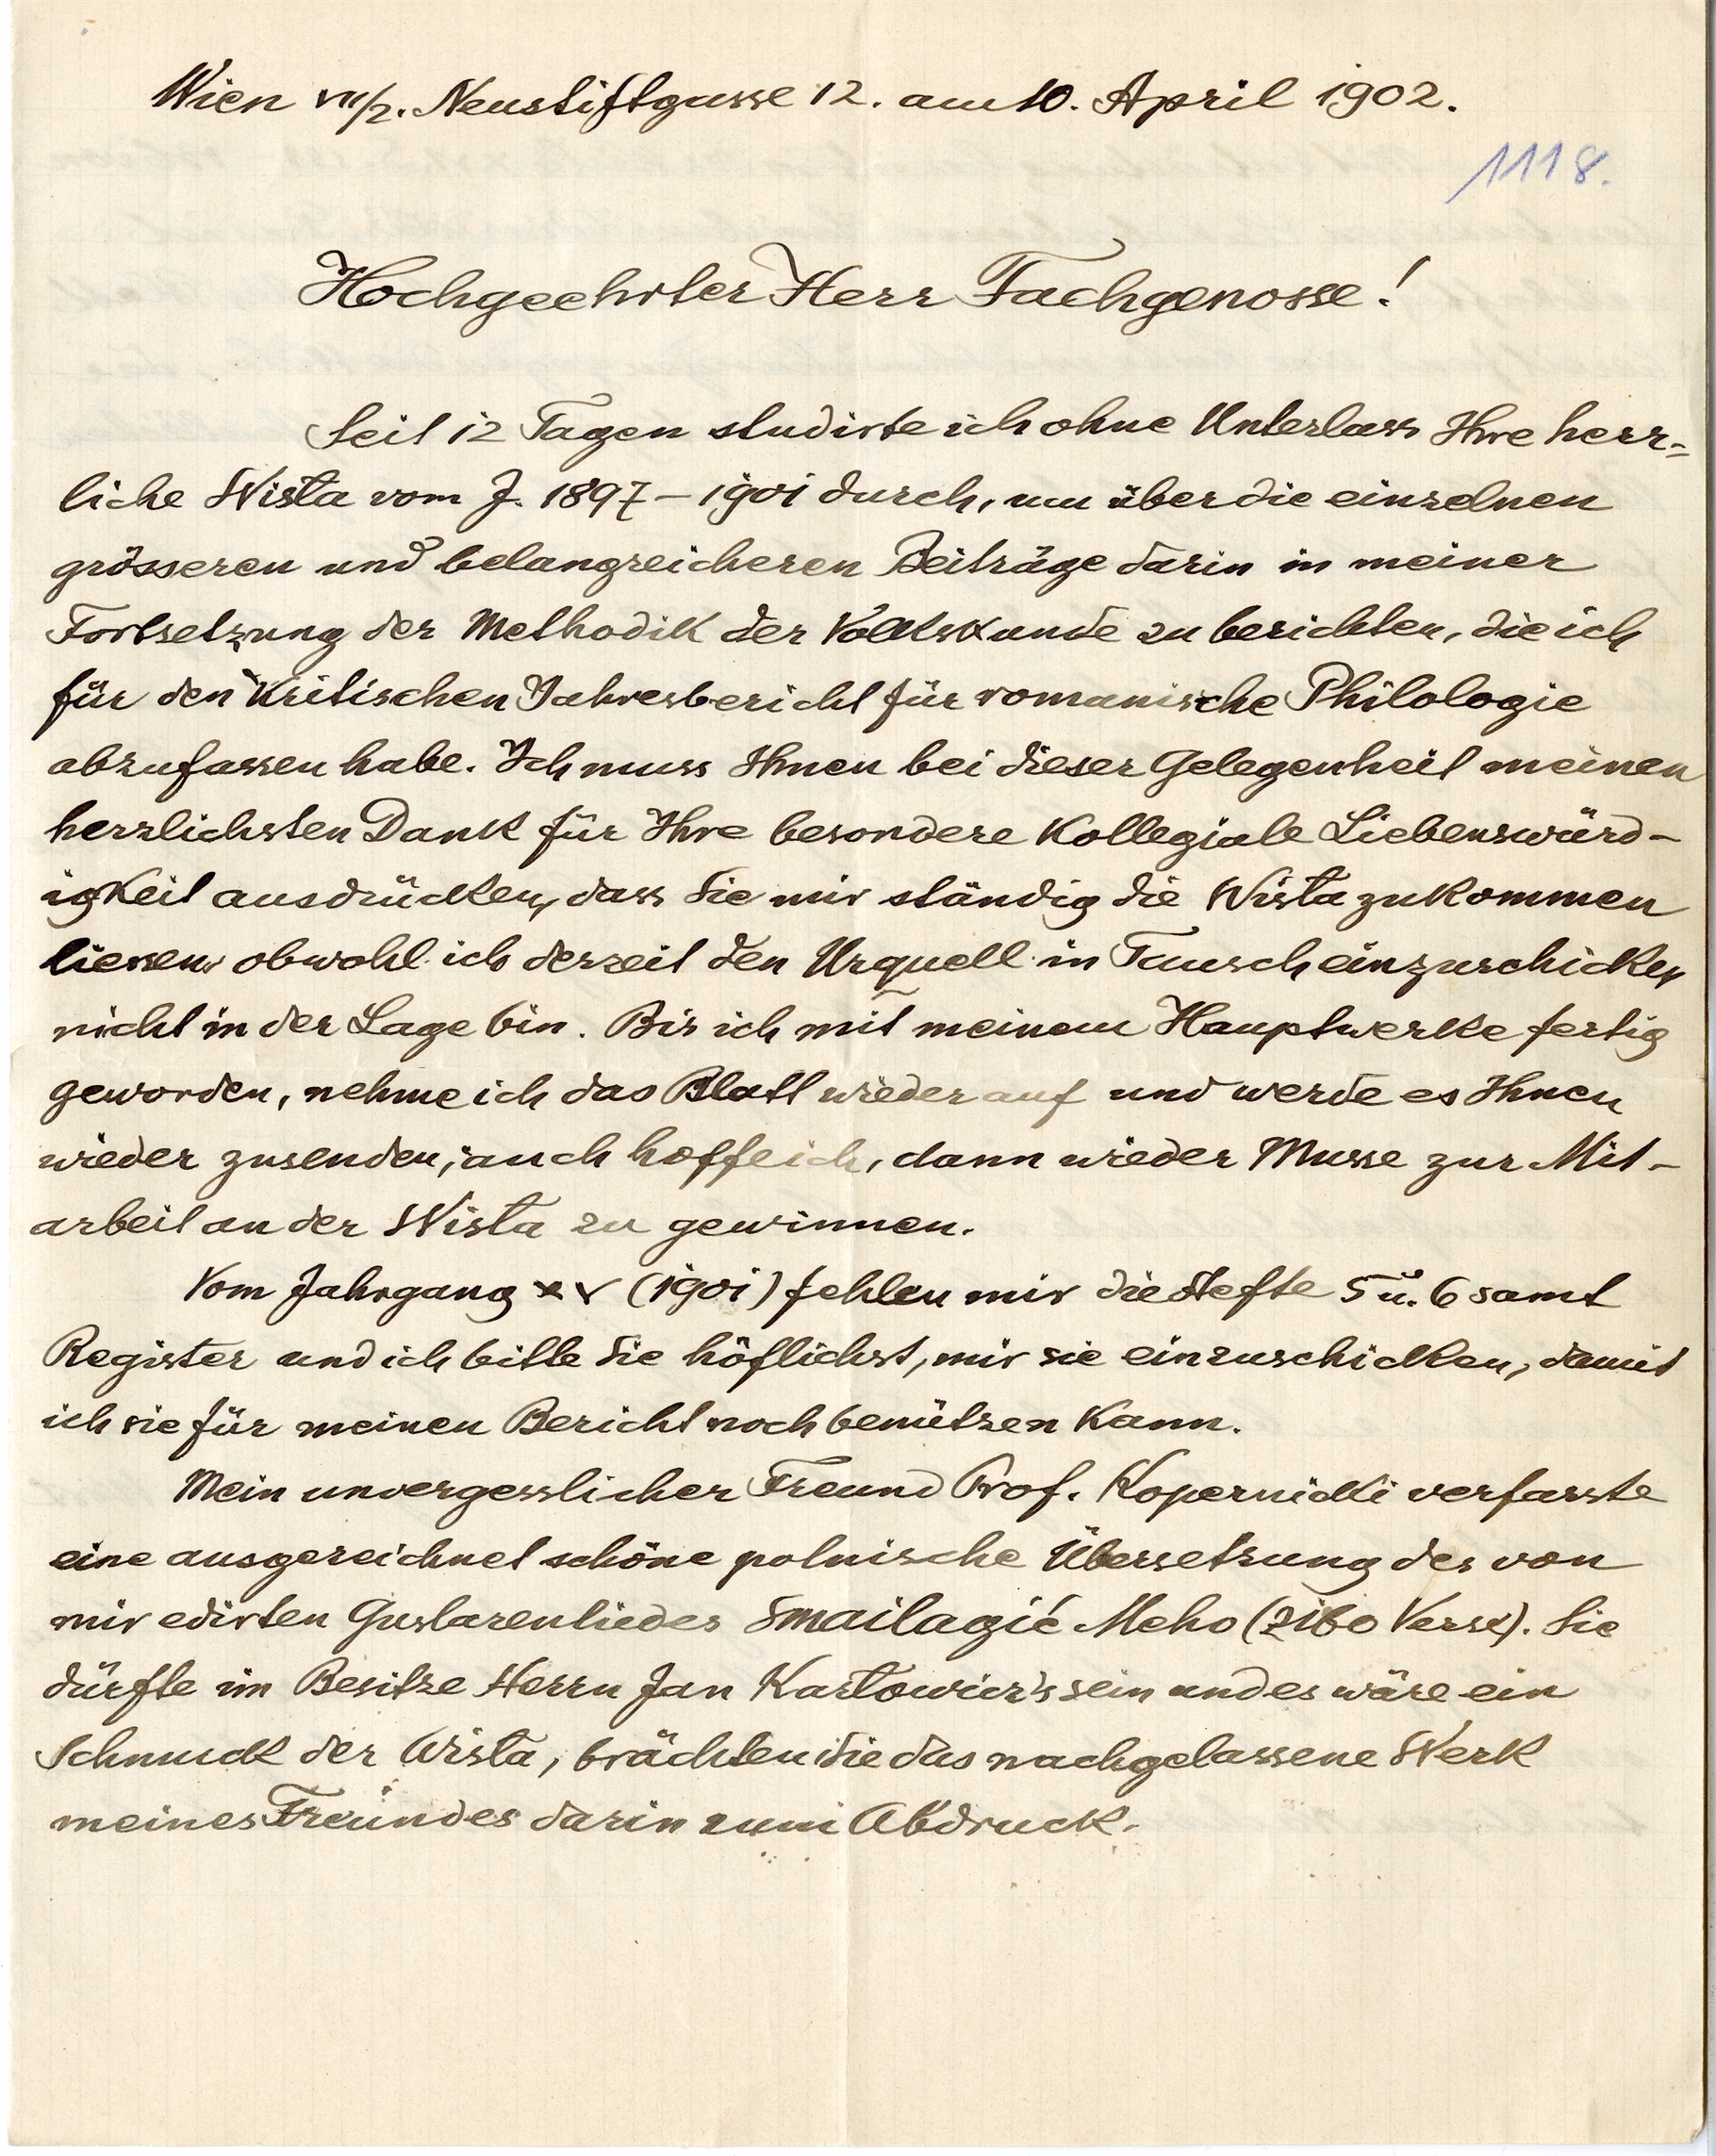 Wien VII/2. Neustiftgasse 12. am 10. April 1902.
1118.
Hochgeehrter Herr Fachgenosse!
Seit 12 Tagen studirte ich ohne Unterlass Ihre herr-
liche Wisła vom J. 1897 – 1901 durch, um über die einzelnen
grösseren und belangreicheren Beiträge darin in meiner
Fortsetzung der Methodik der Volkskunde zu berichten, die ich
für den Kritischen Jahresbericht für romanische Philologie
abzufassen habe. Ich muss Ihnen bei dieser Gelegenheit meinen
herzlichsten Dank für Ihre besondere Kollegiale Liebenswürd-
igkeit ausdrücken, dass Sie mir ständig die Wisła zukommen
liessen, obwohl ich derzeit den Urquell in Tausch einzuschicken
nicht in der Lage bin. Bis ich mit meinem Hauptwerke fertig
geworden, nehme ich das Blatt wieder auf und werde es Ihnen
wieder zusenden; auch hoffe ich, dann wieder Musse zur Mit-
arbeit an der Wisła zu gewinnen.
Vom Jahrgang XV (1901) fehlen mir die Hefte 5 u. 6 samt
Register und ich bitte Sie höflichst, mir sie einzuschicken, damit
ich sie für meinen Bericht noch benützen kann.
Mein unvergesslicher Freund Prof. Kopernicki verfasste
eine ausgezeichnet schöne polnische Übersetzung des von
mir edirten Guslarenliedes Smailagić Meho (2160 Verse). Sie
dürfte im Besitze Herrn Jan Karłowicz's sein und es wäre ein
Schmuck der Wisła, brächten Sie das nachgelassene Werk
meines Freundes darin zum Abdruck.